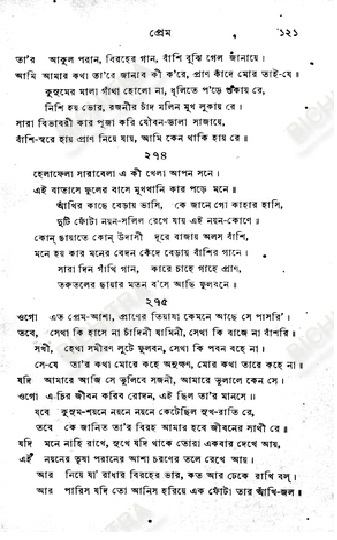 প্রেম ১২১
তা'র আকুল পরান, বিরহের গান, বাঁশি বুঝি গেল জানায়ে।
আমি আমার কথা তা'রে জানাব কী ক'রে, প্রাণ কাঁদে মোর তাই-যে॥
কুসুমের মালা গাঁথা হোলো না, ধূলিতে প'ড়ে শুকায় রে,
নিশি হয় ভোর, রজনীর চাঁদ মলিন মুখ লুকায় রে।
সারা বিভাবরী কার পূজা করি যৌবন-ডালা সাজায়ে,
বাঁশি-স্বরে হায় প্রাণ নিয়ে যায়, আমি কেন থাকি হায় রে॥
২৭৪
হেলাফেলা সারাবেলা এ কী খেলা আপন সনে।
এই বাতাসে ফুলের বাসে মুখখানি কার পড়ে মনে॥
আঁখির কাছে বেড়ায় ভাসি, কে জানে গো কাহার হাসি,
দুটি ফোঁটা নয়ন-সলিল রেখে যায় এই নয়ন-কোণে॥
কোন্ ছায়াতে কোন্ উদাসী দূরে বাজায় অলস বাঁশি,
মনে হয় কার মনের বেদন কেঁদে বেড়ায় বাঁশির গানে॥
সারা দিন গাঁথি গান, কারে চাহে গাহে প্রাণ,
তরুতলের ছায়ার মতন ব'সে আছি ফুলবনে॥
২৭৫
ওগো এত প্রেম-আশা, প্রাণের তিয়াষা কেমনে আছে সে পাসরি'।
তবে, সেথা কি হাসে না চাঁদিনী যামিনী, সেথা কি বাজে না বাঁশরি॥
সখী, হেথা সমীরণ লুটে ফুলবন, সেথা কি পবন বহে না।
সে-যে তা'র কথা মোরে কহে অনুক্ষণ, মোর কথা তারে কহে না॥
যদি আমারে আজি সে ভুলিবে সজনী, আমারে ভুলালে কেন সে।
ওগো এ-চির জীবন করিব রোদন, এই ছিল তা'র মানসে॥
যবে কুসুম-শয়নে নয়নে নয়নে কেটেছিল সুখ-রাতি রে,
তবে কে জানিত তা'র বিরহ আমার হবে জীবনের সাথী রে॥
যদি মনে নাহি রাখে, সুখে যদি থাকে তোরা একবার দেখে আয়,
এই নয়নের তৃষা পরানের আশা চরণের তলে রেখে আয়।
আর নিয়ে যা' রাধার বিরহের ভার, কত আর ঢেকে রাখি বল্।
আর পারিস যদি তো আনিস হরিয়ে এক ফোঁটা তার আঁখি-জল॥